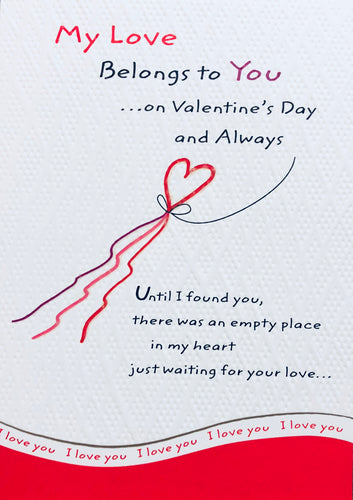 My Love
Belongs to You
...on Valentine's Day
and Always
Until I found you,
there was an empty place
in my heart
just waiting for your love...
I love you I love you I love you I love you I love you